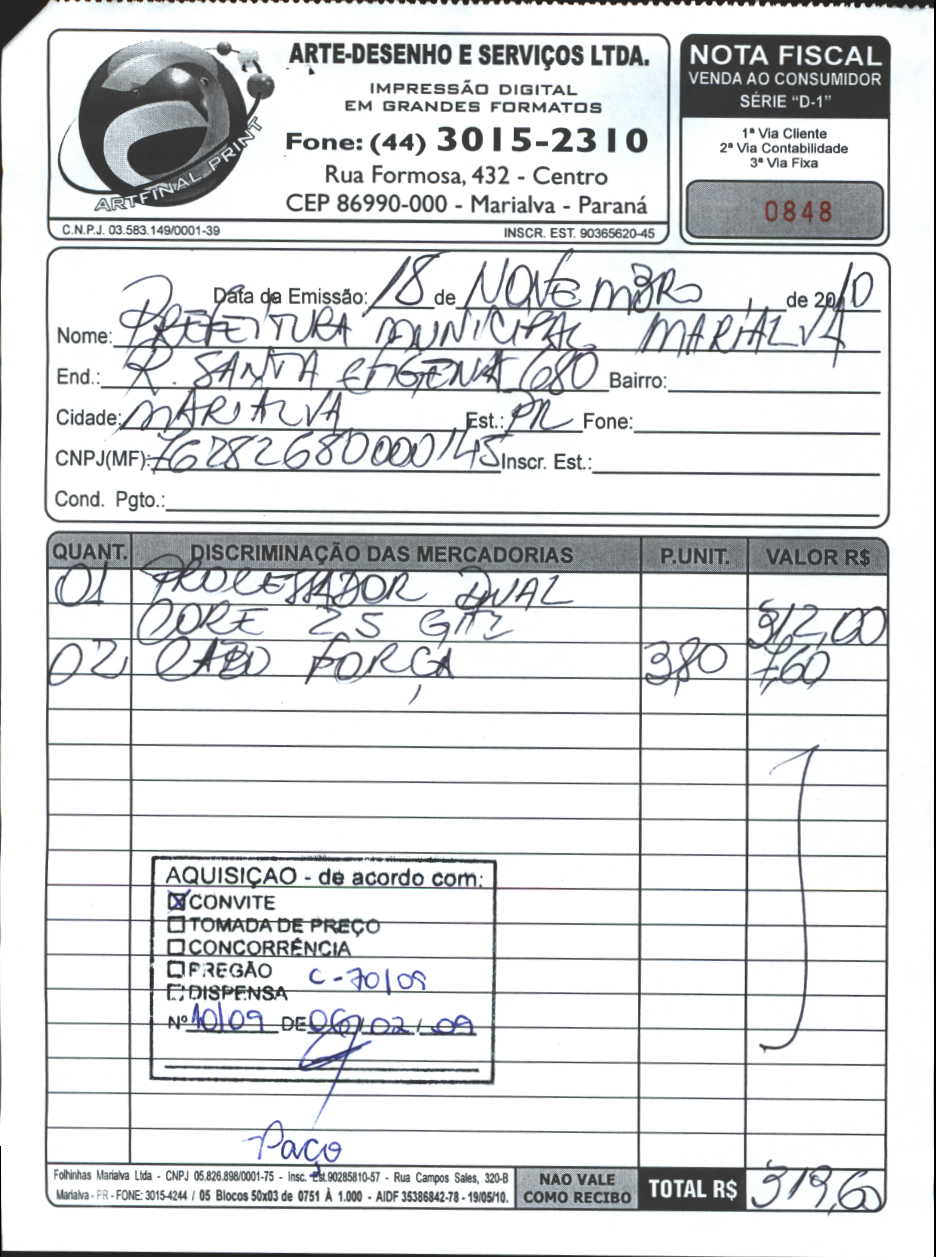 ARTE-DESENHO E SERVIÇOS LTDA.
IMPRESSÃO DIGITAL
EM GRANDES FORMATOS
Fone: (44) 3015-2310
Rua Formosa, 432 - Centro
CEP 86990-000 - Marialva - Paraná
ARTFINAL PRINT
C.N.P.J. 03.583.149/0001-39 INSCR. EST. 90365620-45
NOTA FISCAL
VENDA AO CONSUMIDOR
SÉRIE “D-1”
1ª Via Cliente
2ª Via Contabilidade
3ª Via Fixa
0848
Data da Emissão: 18 de NOVEMBRO de 2010
Nome: PREFEITURA MUNICIPAL MARIALVA
End.: R. SANTA EFIGENIA 680 Bairro:
Cidade: MARIALVA Est.: PR Fone:
CNPJ(MF): 76282680000145 Inscr. Est.:
Cond. Pgto.:
QUANT. DISCRIMINAÇÃO DAS MERCADORIAS P.UNIT. VALOR R$
01 PROCESSADOR DUAL
CORE 2,5 GHZ 312,00
02 CABO FORÇA 3,80 7,60
AQUISIÇAO - de acordo com:
CONVITE
TOMADA DE PREÇO
CONCORRÊNCIA
PREGÃO C-70/09
DISPENSA
Nº 10/09 DE 06/02/09
Paço
Folhinhas Marialva Ltda - CNPJ 05.826.898/0001-75 - Insc. Est.90285810-57 - Rua Campos Sales, 320-B
Marialva - PR - FONE: 3015-4244 / 05 Blocos 50x03 de 0751 À 1.000 - AIDF 35386842-78 - 19/05/10.
NAO VALE
COMO RECIBO
TOTAL R$ 319,60